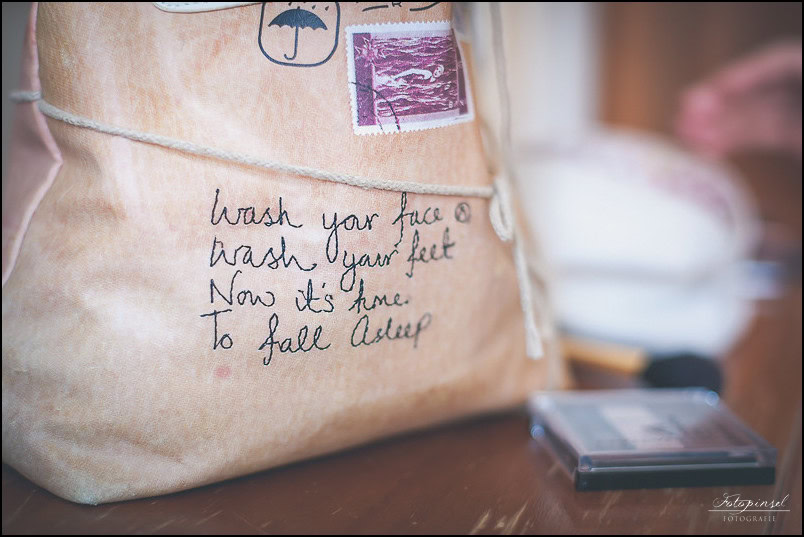 Wash your face
Wash your feet
Now it's time
To fall Asleep
Fotopinsel
FOTOGRAFIE